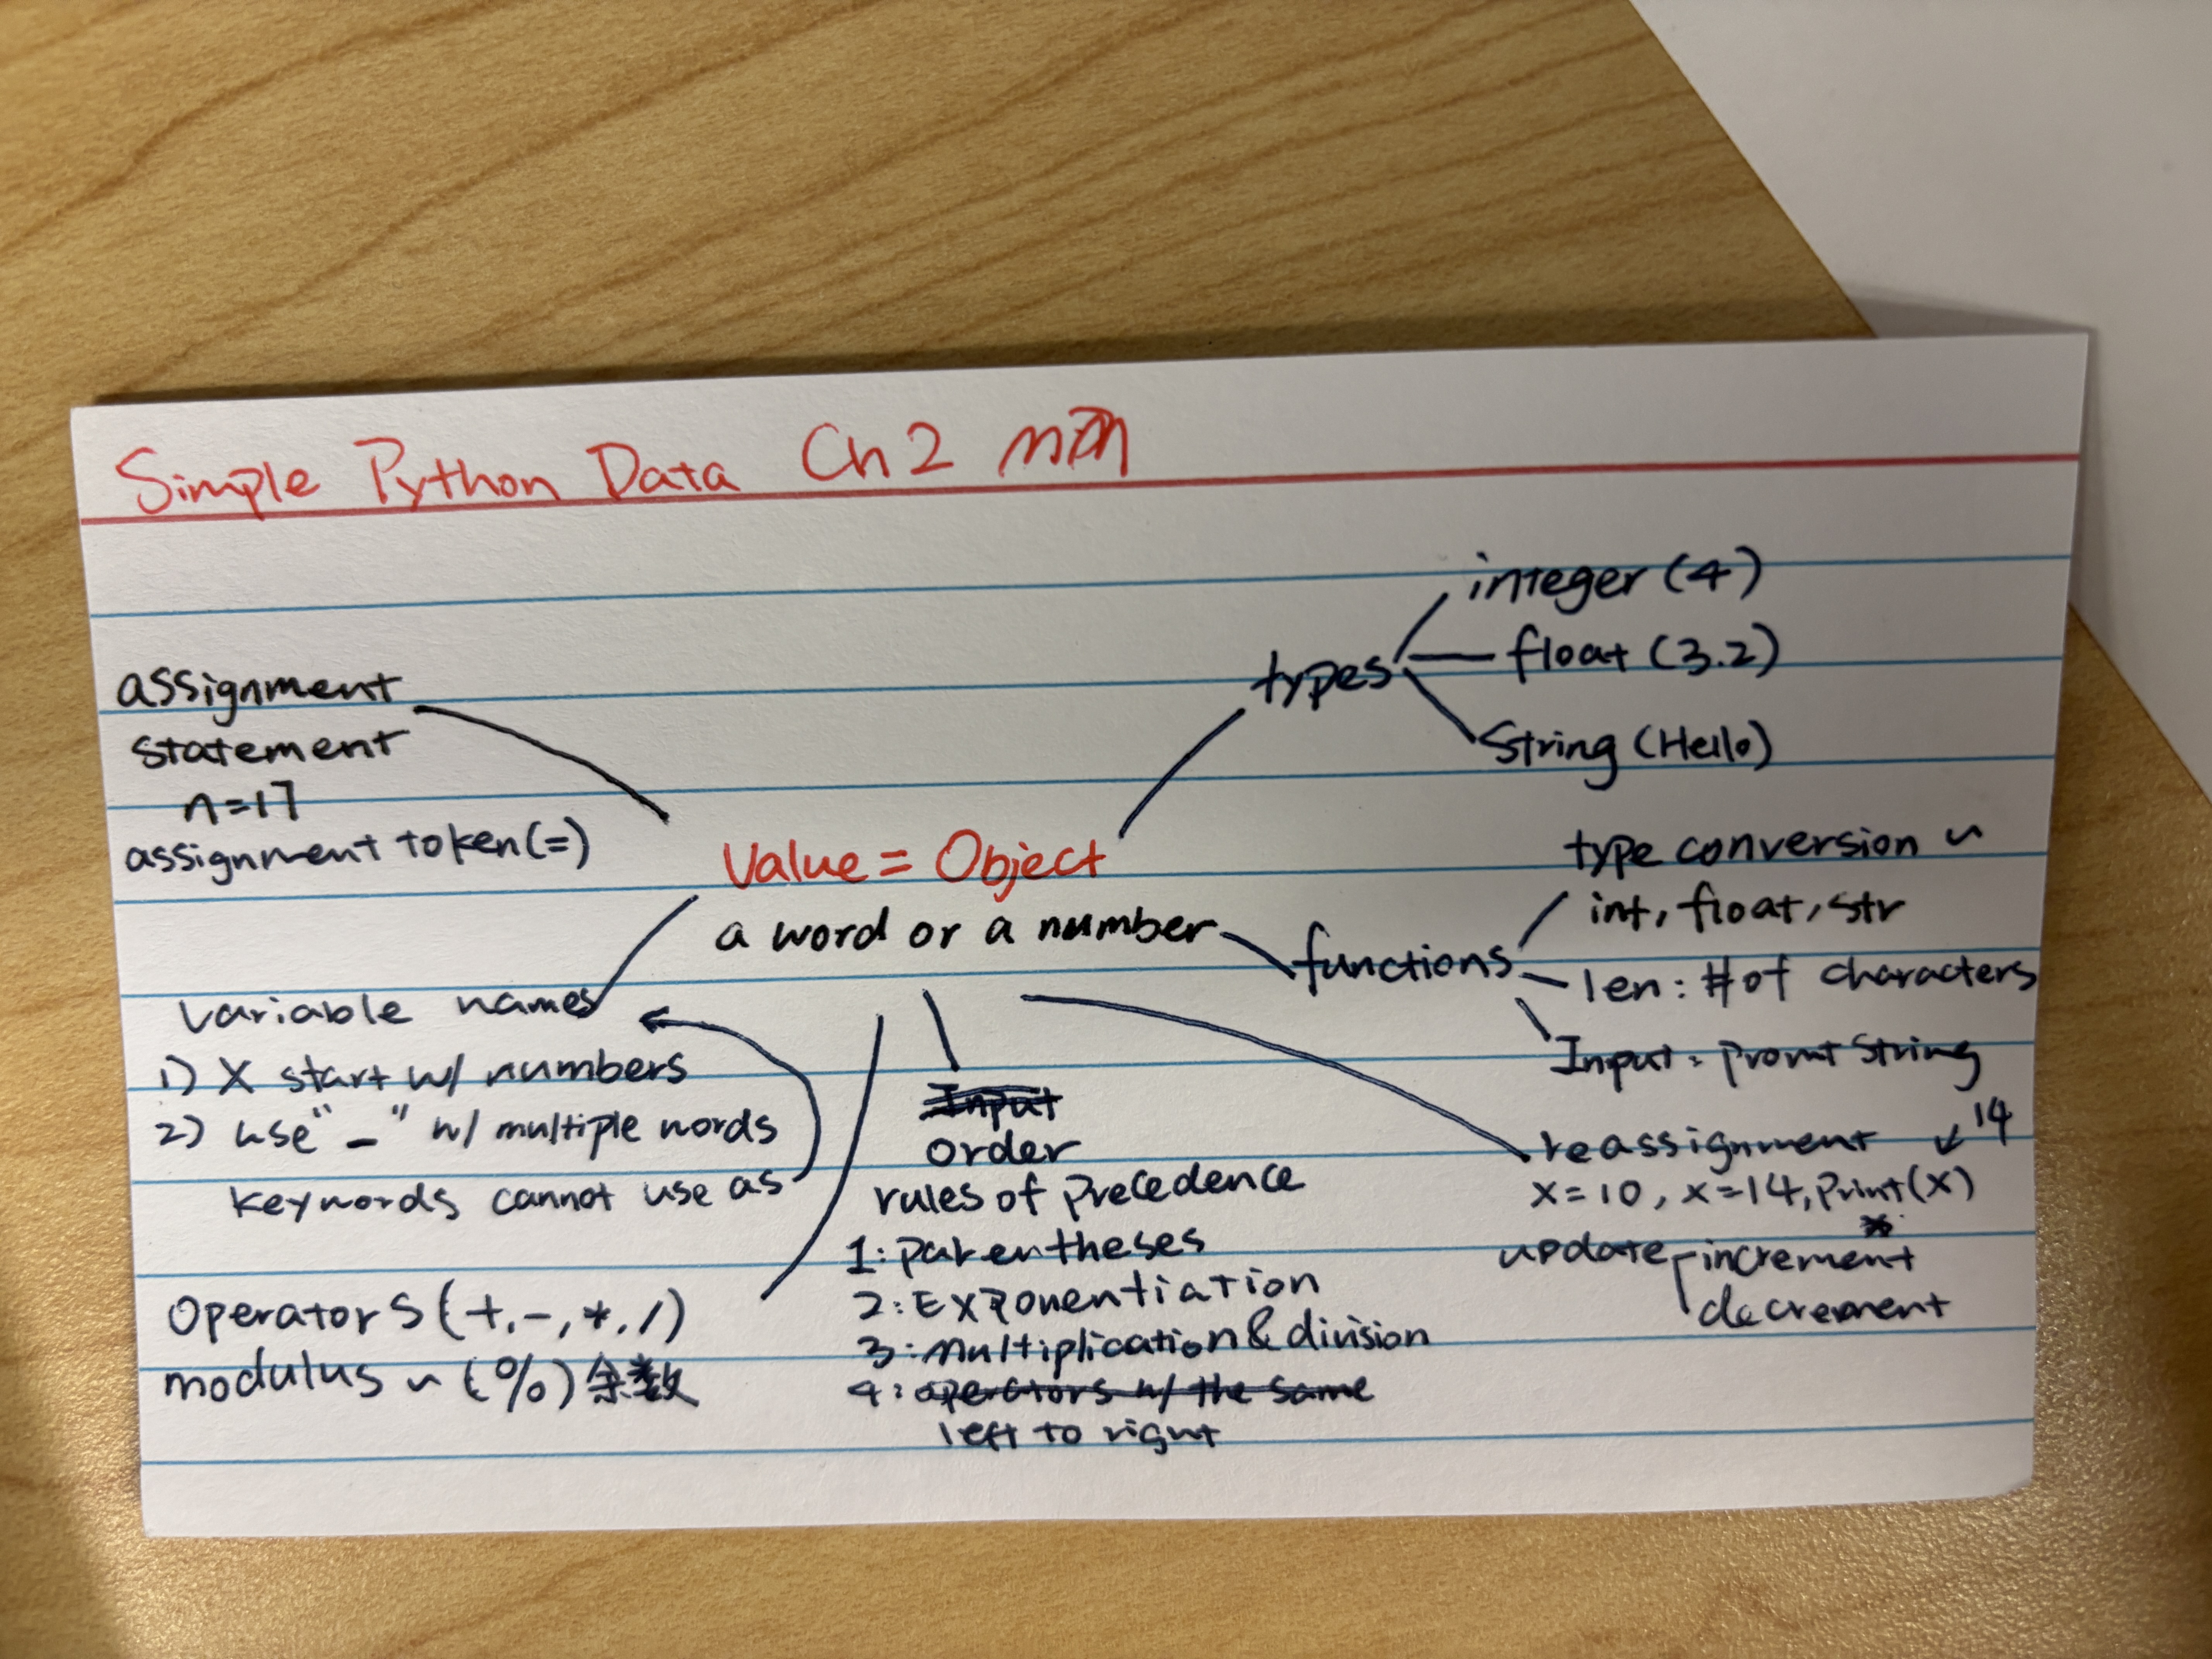 Simple Python Data Ch 2
assignment
statement
n=17
assignment token(=)
types
integer (4)
float (3.2)
String (Hello)
Value = Object
a word or a number
functions
type conversion ~
int, float, str
len: # of characters
Input: promt string
variable names
1) X start w/ numbers
2) use "_" w/ multiple words
keywords cannot use as
Input
order
rules of precedence
1: parentheses
2: Exponentiation
3: multiplication & division
4: operators w/ the same
left to right
reassignment ↙ 14
x=10, x=14, print(x)
update
increment
decrement
operators (+, -, *, /)
modulus ~ (%) 余数